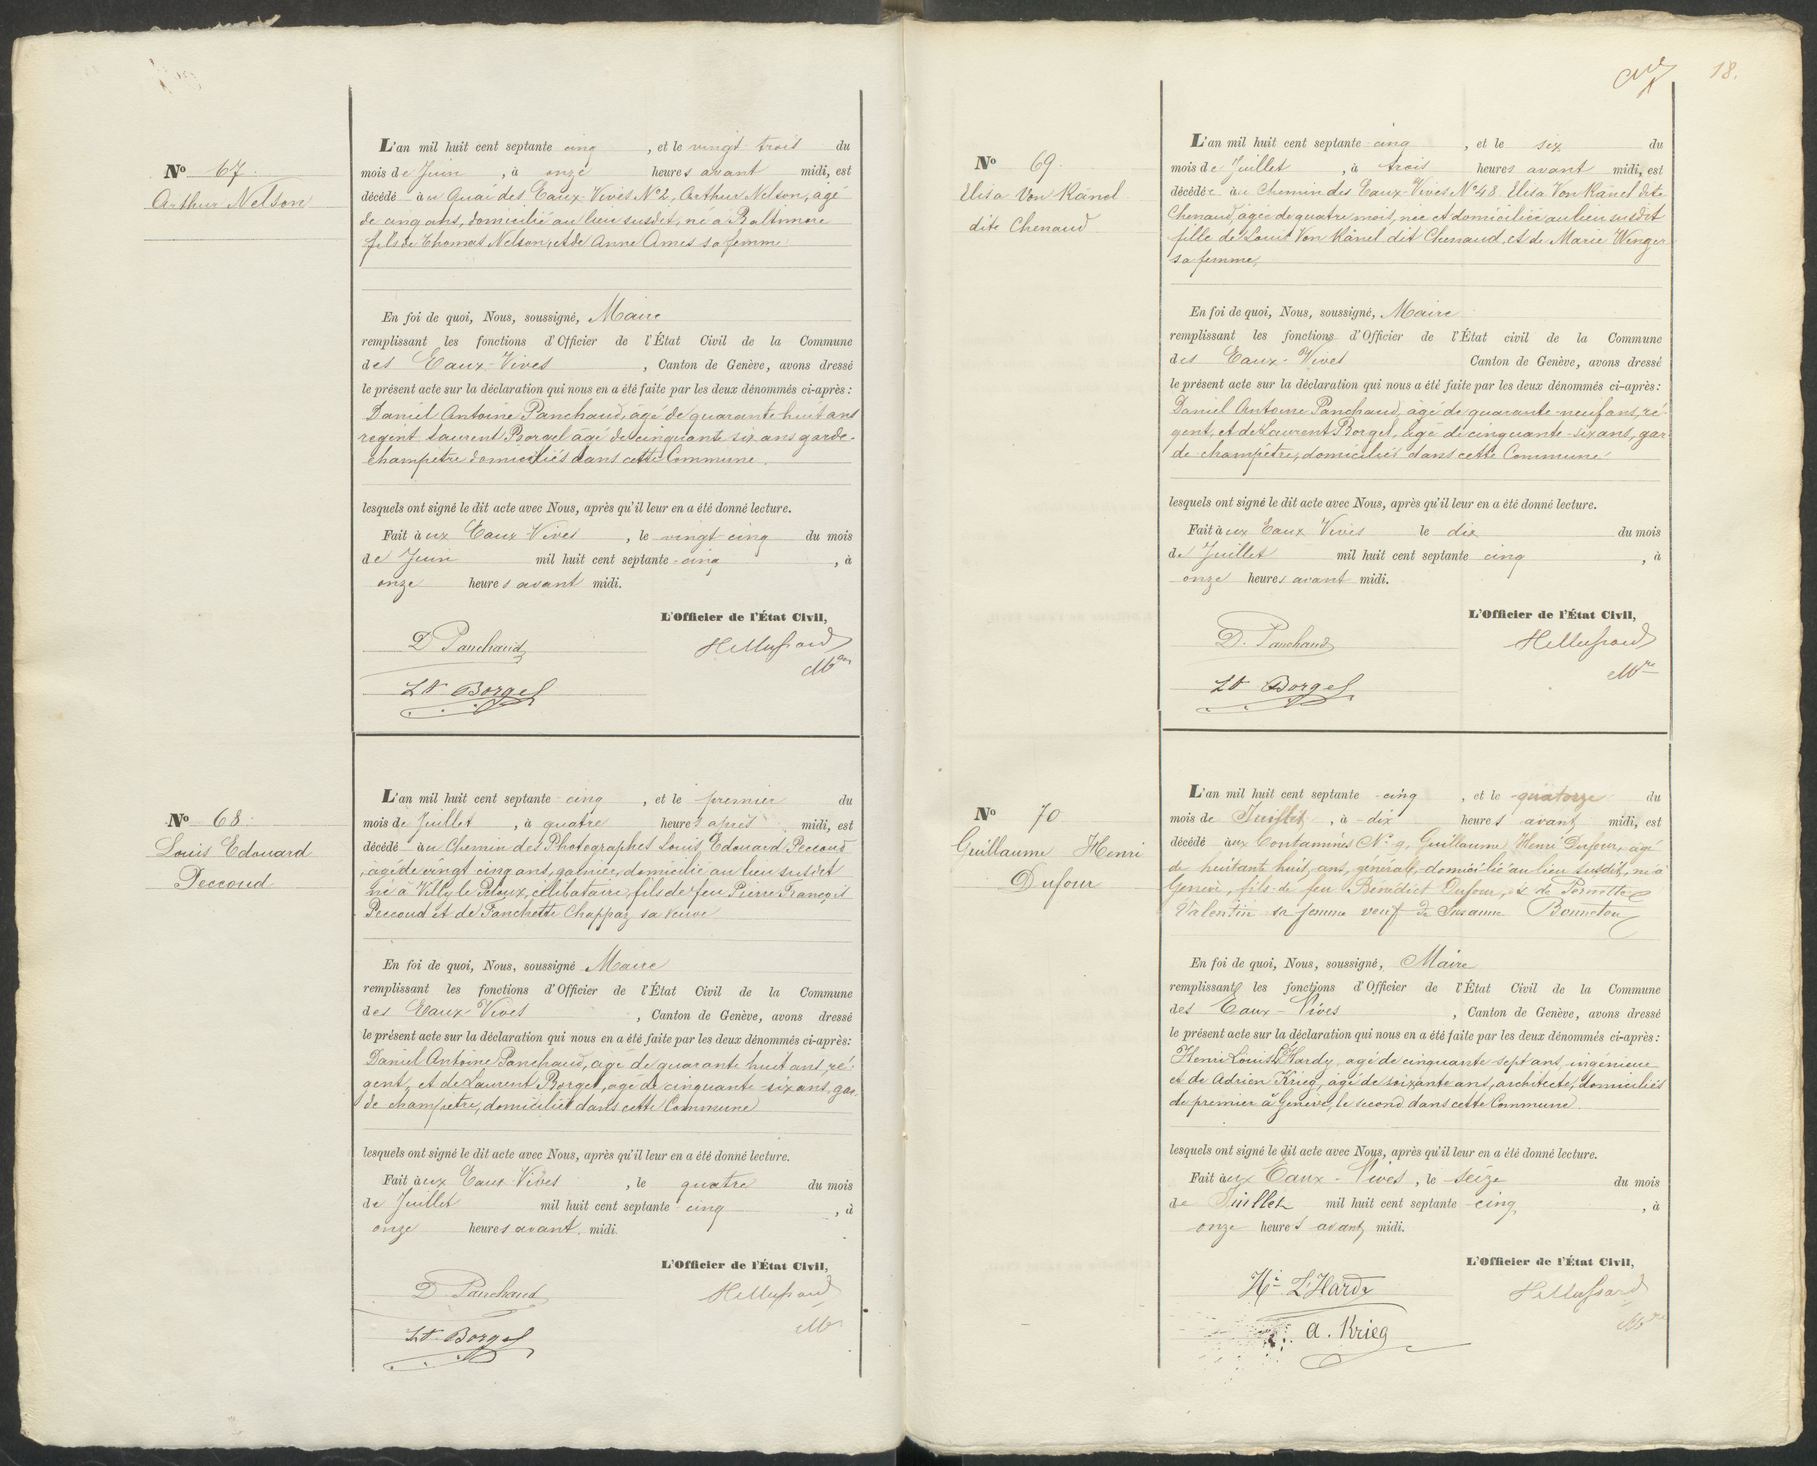 No 67.
Arthur Nelson
L'an mil huit cent septante cinq , et le vingt trois du
mois de Juin , à onze heures avant midi, est
décédé au Quai des Eaux-Vives No 2, Arthur Nelson, âgé
de cinq ans, domicilié au lieu susdit, né à Baltimore
fils de Thomas Nelson, et de Anne Ames sa femme
En foi de quoi, Nous, soussigné, Maire
remplissant les fonctions d'Officier de l'État Civil de la Commune
des Eaux-Vives , Canton de Genève, avons dressé
le présent acte sur la déclaration qui nous en a été faite par les deux dénommés ci-après:
Daniel Antoine Panchaud, âgé de quarante huit ans
regent Laurent Borgel âgé de cinquante six ans garde-
champetre domiciliés dans cette Commune.
lesquels ont signé le dit acte avec Nous, après qu'il leur en a été donné lecture.
Fait aux Eaux Vives , le vingt cinq du mois
de Juin mil huit cent septante cinq , à
onze heures avant midi.
L'Officier de l'État Civil,
D Panchaud
Lt Borgel
No 68.
Louis Edouard
Peccoud
L'an mil huit cent septante cinq , et le premier du
mois de Juillet , à quatre heures après midi, est
décédé au Chemin des Photographes Louis Edouard Peccoud
âgé de vingt cinq ans, gainier, domicilié au lieu susdit
né à Villy le Peloux, célibataire, fils de feu Pierre François
Peccoud et de Fanchette Chappaz sa veuve
En foi de quoi, Nous, soussigné Maire
remplissant les fonctions d'Officier de l'État Civil de la Commune
des Eaux-Vives , Canton de Genève, avons dressé
le présent acte sur la déclaration qui nous en a été faite par les deux dénommés ci-après:
Daniel Antoine Panchaud, âgé de quarante huit ans, ré-
gent, et de Laurent Borgel, âgé de cinquante-six ans, gar-
de champetre, domiciliés dans cette Commune
lesquels ont signé le dit acte avec Nous, après qu'il leur en a été donné lecture.
Fait aux Eaux-Vives , le quatre du mois
de Juillet mil huit cent septante cinq , à
onze heures avant midi.
L'Officier de l'État Civil,
D Panchaud
Lt Borgel
18.
No 69.
Elisa Von Känel
dite Chenaud
L'an mil huit cent septante cinq , et le six du
mois de Juillet , à trois heures avant midi, est
décédée au Chemin des Eaux-Vives No 48 Elisa Von Känel dite
Chenaud, âgée de quatre mois, née et domiciliée au lieu susdit
fille de Louis Von Känel dit Chenaud, et de Marie Wenger
sa femme,
En foi de quoi, Nous, soussigné, Maire
remplissant les fonctions d'Officier de l'État civil de la Commune
des Eaux-Vives Canton de Genève, avons dressé
le présent acte sur la déclaration qui nous a été faite par les deux dénommés ci-après:
Daniel Antoine Panchaud, âgé de quarante-neuf ans, ré-
gent, et de Laurent Borgel, âgé de cinquante-six ans, gar-
de-champêtre, domiciliés dans cette Commune
lesquels ont signé le dit acte avec Nous, après qu'il leur en a été donné lecture.
Fait aux Eaux Vives le dix du mois
de Juillet mil huit cent septante cinq , à
onze heures avant midi.
L'Officier de l'État Civil,
D. Panchaud
Lt Borgel
No 70
Guillaume Henri
Dufour
L'an mil huit cent septante cinq , et le quatorze du
mois de Juillet , à dix heures avant midi, est
décédé aux Contamines No 9, Guillaume Henri Dufour, âgé
de huitante huit ans, général, domicilié au lieu susdit, né à
Genève, fils de feu Bénédict Dufour, et de Pernette
Valentin sa femme veuf de Suzanne Bonneton
En foi de quoi, Nous, soussigné, Maire
remplissant les fonctions d'Officier de l'État Civil de la Commune
des Eaux-Vives , Canton de Genève, avons dressé
le présent acte sur la déclaration qui nous en a été faite par les deux dénommés ci-après:
Henri Louis L'Hardy, âgé de cinquante-sept ans, ingénieur
et de Adrien Krieg, âgé de soixante ans, architecte, domiciliés
de premier à Genève, le second dans cette Commune.
lesquels ont signé le dit acte avec Nous, après qu'il leur en a été donné lecture.
Fait aux Eaux-Vives , le seize du mois
de Juillet mil huit cent septante cinq , à
onze heures avant midi.
L'Officier de l'État Civil,
Hri L'Hardy
A. Krieg